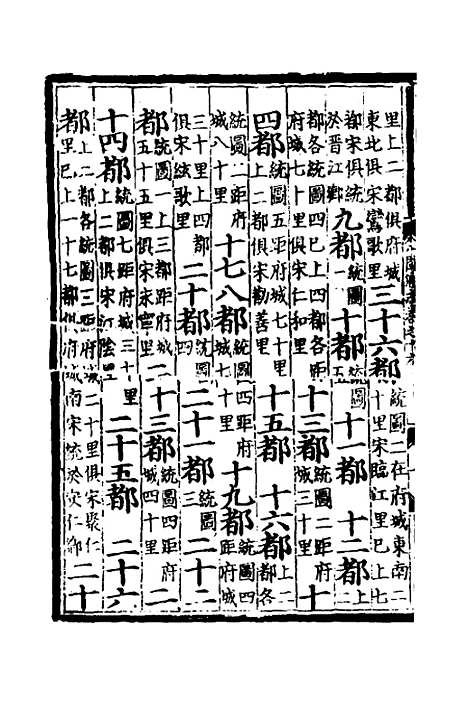 里上二都俱府城
東北俱宋鸞歌里
三十六都
統圖二在府城東南二
十里宋臨江里已上七
都宋俱統
於晉江鄉
九都
統圖
一
十都
統圖
五
十一都 十二都
上二
都各統圖四已上四都各距
府城七十里俱宋仁和里
十三都
統圖二距府
城三十里
十
四都
統圖五距府城七十里
上二都俱宋勸善里
十五都 十六都
上二
都各
統圖二距府
城八十里
十七八都
統圖四距府
城七十里
十九都
統圖四
距府城
三十里上四都
俱宋絃歌里
二十都
統圖
四
二十一都
統圖
三
二十二
都
統圖一上三都距府城一
五十五里俱宋永寧里
十三都
統圖四距府
城四十里
二
十四都
統圖七距府城三十里
上二都俱宋江陰里
二十五都 二十六
都
上二都各統圖三距府城二十里俱宋聚仁
里已上一十七都俱府城南宋統於宋仁鄉
二十